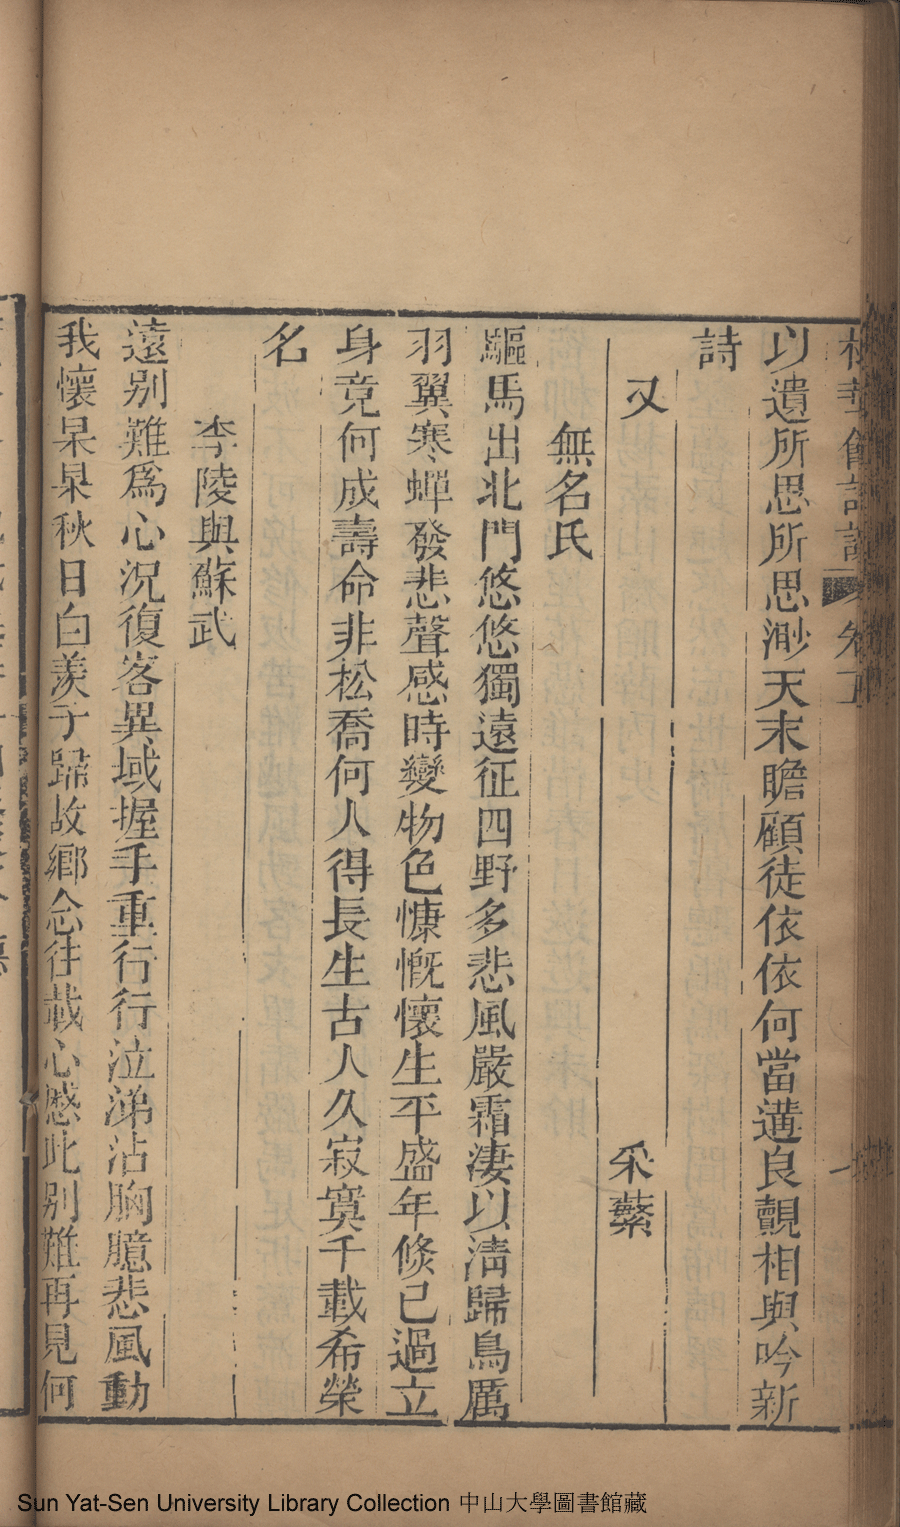 以遺所思所思渺天末瞻顧徒依依何當遘良覿相與吟新
詩
又 采蘩
無名氏
驅馬出北門悠悠獨遠征四野多悲風嚴霜淒以清歸鳥厲
羽翼寒蟬發悲聲感時變物色慷慨懷生平盛年倐已過立
身竟何成壽命非松喬何人得長生古人久寂寞千載希榮
名
李陵與蘇武
遠别難爲心況復客異域握手重行行泣涕沾胸臆悲風動
我懷杲杲秋日白羨子歸故鄉念往戢心慼此别難再見何
Sun Yat-Sen University Library Collection 中山大學圖書館藏